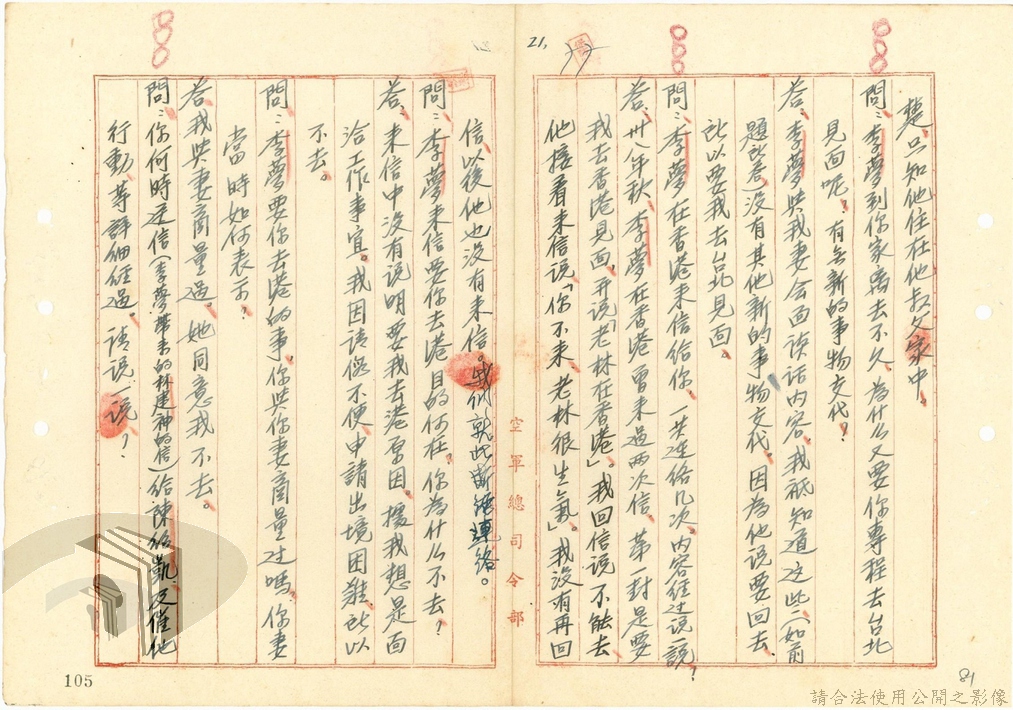 楚。只知他住在他叔父家中。
問：李夢到你家离去不久、為什么又要你專程去台北
見面呢？有無新的事物交代？
答、李夢與我妻会面談話內容、我祇知道这些、（如前
題﻿所答）没有其他新的事物交代、因為他說要回去
所以要我去台北見面。
問：李夢在香港来信給你、一共連給几次。內容経过説一說？
答、卅八年秋、李夢在香港曾来过两次信、第一封是要
我去香港見面、并说「老林在香港」。我回信说不能去
他接着来信说「你不来、老林很生氣」。我没有再回
信以後他也没有来信。我们就此断绝連络。
問：李夢来信要你去港目的何在、你為什么不去？
答、来信中没有说明要我去港原因。據我想是面
洽工作事宜。我因請假不便、申請出境困難所以
不去。
問：李夢要你去港的事、你與你妻商量过嗎、你妻
當時如何表示？
答我與妻商量过、她同意我不去。
問：你何時送信（李夢帶来的林建神的信）給陳紹凱及催他
行動、等詳細経過。請說一說？
空軍總司令部
21,
105
81
請合法使用公開之影像